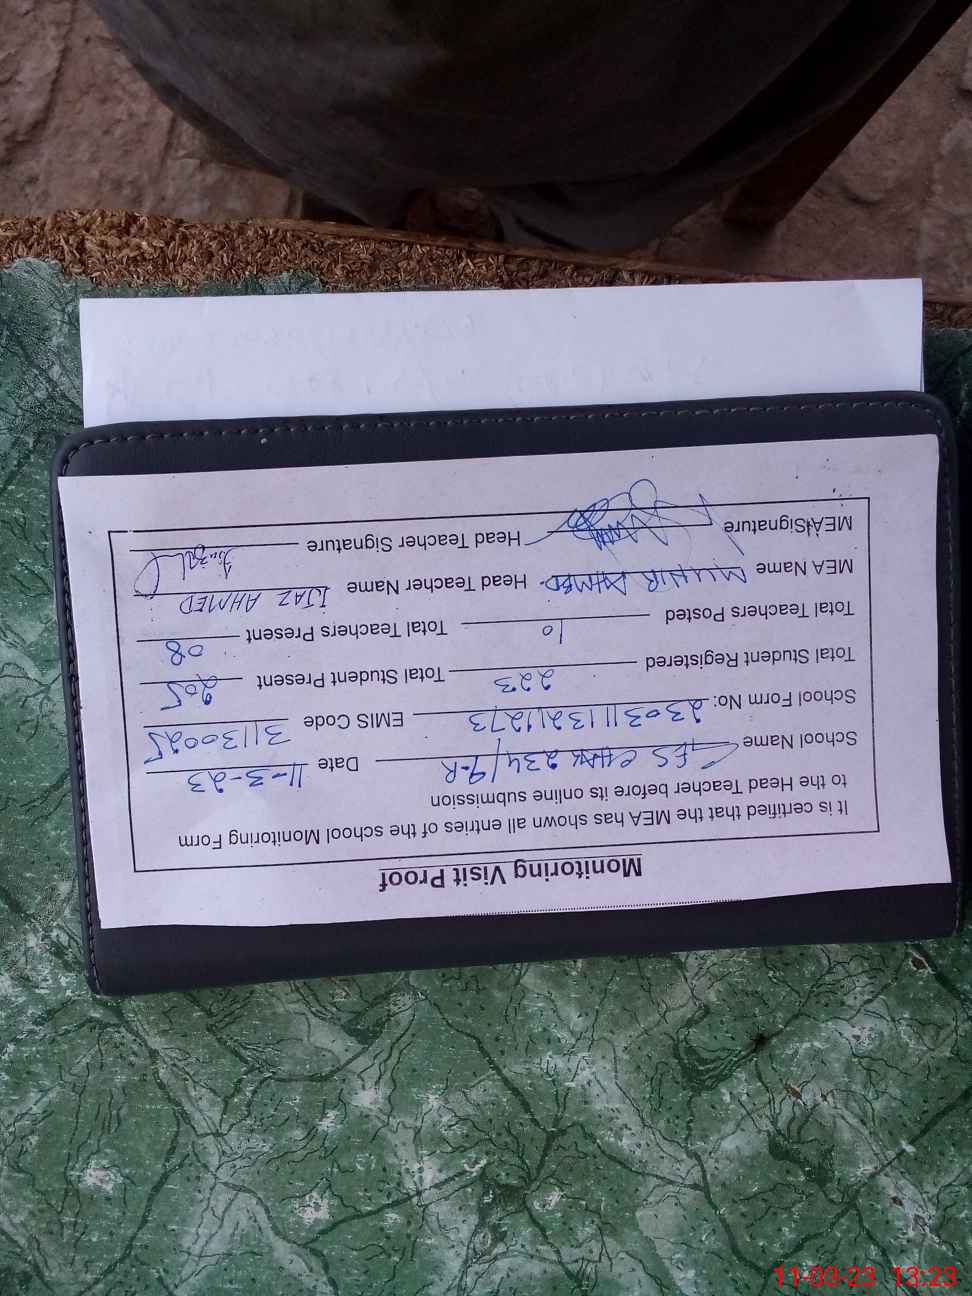 Monitoring Visit Proof
It is certified that the MEA has shown all entries of the school Monitoring Form
to the Head Teacher before its online submission
School Name GES CHAK 234/9-R Date 11-3-23
School Form No: 23031113211273 EMIS Code 31130025
Total Student Registered 223 Total Student Present 205
Total Teachers Posted 10 Total Teachers Present 08
MEA Name MUNIR AHMED Head Teacher Name IJAZ AHMED
MEA Signature Head Teacher Signature
11-03-23 13:23